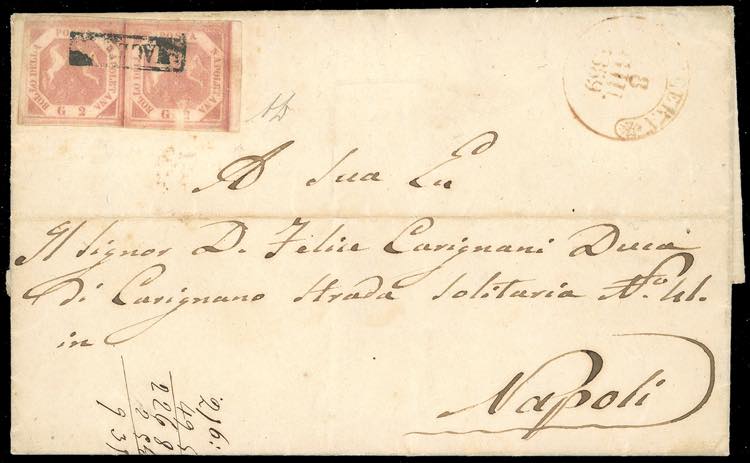 POSTA NAPOLETANA
BOLLO DELLA
G 2
POSTA NAPOLETANA
BOLLO DELLA
G 2
8
A Sua Ec
Il Signor D. Felice Carignani Duca
di Carignano Strada Solitaria No. 41.
in
Napoli
216: